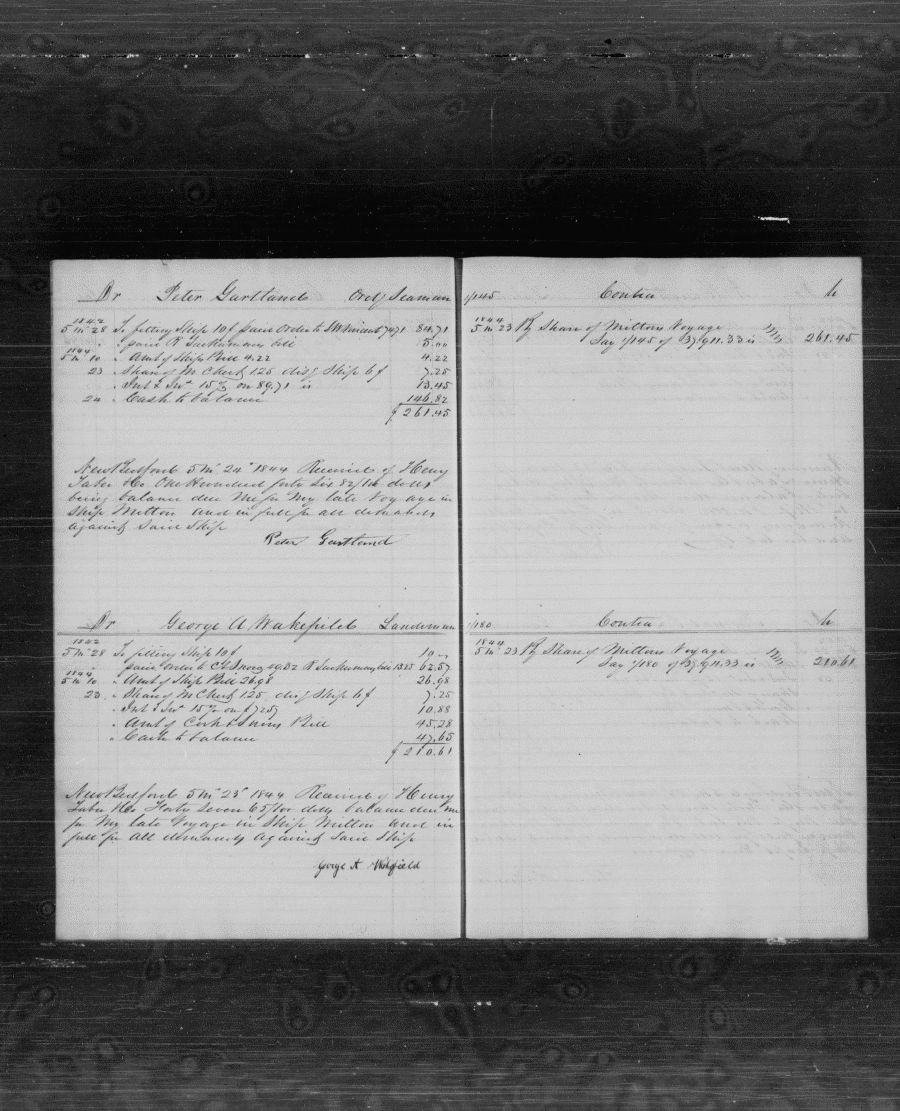 Dr Peter Gartland Ord Seaman 1/145
1842
5 mo 28 To fitting Ship 10 f paid Order to 84.71
" paid R Tuckerman bill 5.00
1844
5 mo 10 " Amt of Ship Bill 4.22 4.22
23 " Share of M Chest 125 disg Ship 6 f 7.25
" Int & Inse 15 % on 89.71 is 13.45
24 " Cash to balance 146.82
$ 261.45
New Bedford 5 mo 24 1844 Received of Henry
Taber & Co One Hundred forty six 82/100 dolls
being balance due me for my late Voyage in
Ship Milton and in full for all demands
against said Ship
Peter Gartland
Contra Cr
1844
5 mo 23 By Share of Miltons Voyage
Say 1/145 of is 261.45
Dr George A Wakefield Landsman 1/180
1842
5 mo 28 To fitting Ship 10 f 10
" paid order to 62.57
1844
5 mo 10 " Amt of Ship Bill 26.98 26.98
23 " Share of M Chest 125 disg Ship 6 f 7.25
" Int & Inse 15 % on 10.88
" Amt of Bill 45.28
" Cash to balance 47.65
$ 210.61
New Bedford 5 mo 25 1844 Received of Henry
Taber & Co Forty Seven 65/100 dolls balance due me
for my late Voyage in Ship Milton and in
full for all demands against said Ship
George A Wakefield
Contra Cr
1844
5 mo 23 By Share of Miltons Voyage
Say 1/180 of is 210.61